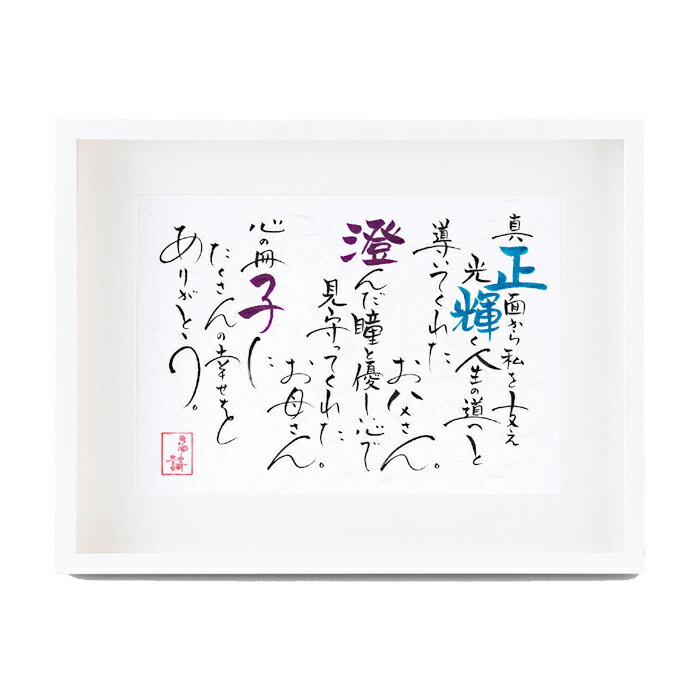 真正面から私を支え
光輝く人生の道へと
導いてくれた
お父さん。
澄んだ瞳と優し心で
見守ってくれた。
お母さん
心の冊子に
たくさんの幸せをと
ありがとう。